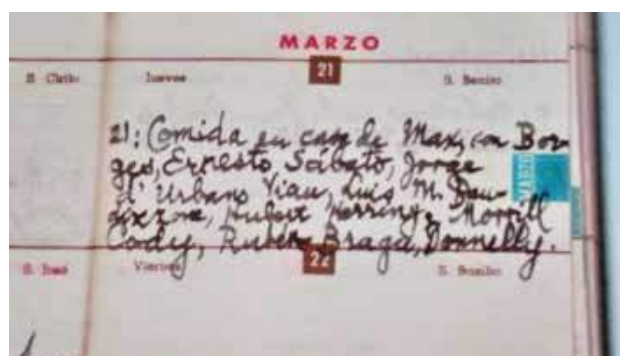 MARZO
S. Cirilo Jueves 21 S. Benito
21: Comida en casa de Max, con Bor-
ges, Ernesto Sábato, Jorge
d'Urbano Viau, Luis M. Bau-
dizzone, Hubert Herring, Morrill
Cody, Rubem Braga, Donnelly.
MARZO
S. José Viernes 22 S. Basilio